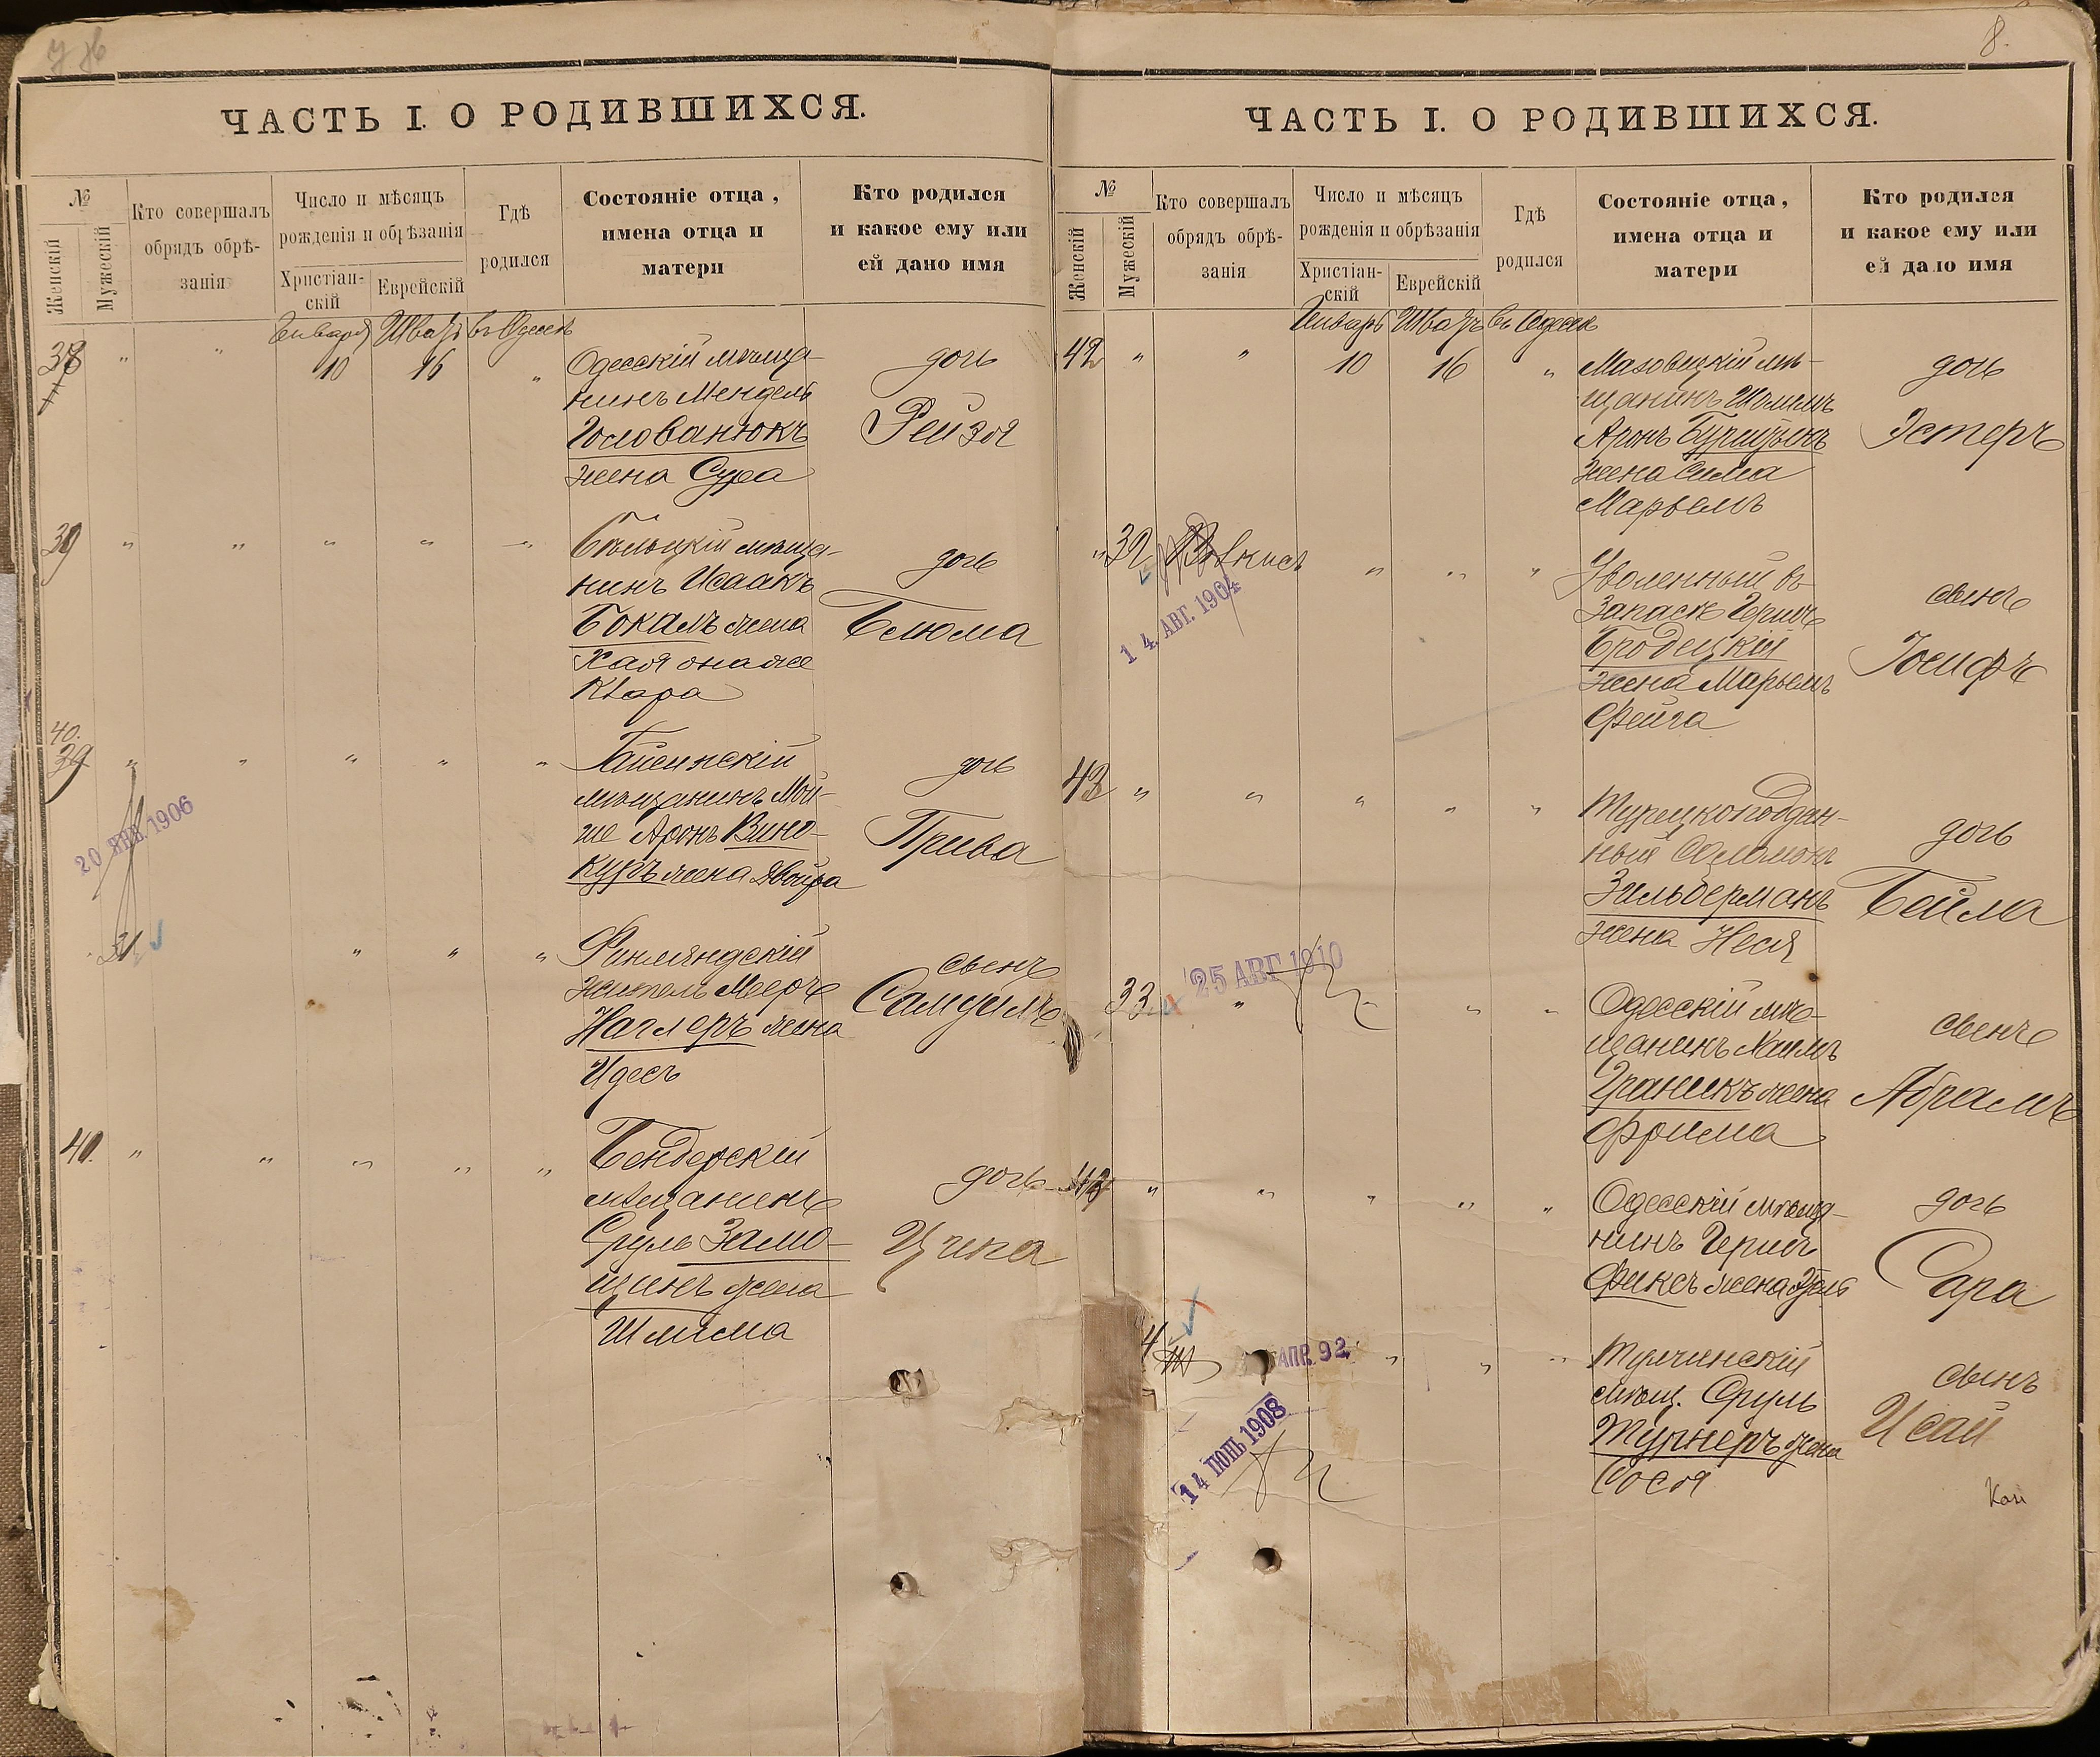 8.
ЧАСТЬ I. О РОДИВШИХСЯ.
№
Женскій
Мужескій
Кто совершалъ
обрядъ обрѣ-
занія
Число и мѣсяцъ
рожденія и обрѣзанія
Христіан-
скій
Еврейскій
Гдѣ
родился
Состояніе отца,
имена отца и
матери
Кто родился
и какое ему или
ей дано имя
Январь Шватъ въ Одессѣ
38 " " 10 16 "
Одесскій мѣща-
нинъ Мендель
Голованюкъ
жена Сура
дочь
Рейзя
39 " " " " "
Бѣльцкій мѣща-
нинъ Исаакъ
Бокалъ жена
Хая она же
Клара
дочь
Блюма
40.
39 " " " " "
Гайсинскій
мѣщанинъ Мой-
ше Аронъ Вино-
куръ жена Двойра
дочь
Прива
20 ЯНВ. 1906
31 " " "
Финляндскій
житель Мееръ
Наглеръ жена
Идесъ
сынъ
Самуилъ
41. " " " " "
Бендерскій
мѣщанинъ
Сруль Замо-
щинъ жена
Шлима
дочь
Ципа
ЧАСТЬ I. О РОДИВШИХСЯ.
№
Женскій
Мужескій
Кто совершалъ
обрядъ обрѣ-
занія
Число и мѣсяцъ
рожденія и обрѣзанія
Христіан-
скій
Еврейскій
Гдѣ
родился
Состояніе отца,
имена отца и
матери
Кто родился
и какое ему или
ей дано имя
Январь Шватъ въ Одессѣ
42 " " 10 16 "
Мазовецкій мѣ-
щанинъ Шолимъ
Аронъ Бурштынъ
жена Сима
Марьемъ
дочь
Эстеръ
" 32 " " "
14. АВГ. 1904
Уволенный въ
запасъ Гершъ
Бродецкій
жена Марьемъ
Фейга
сынъ
Іосифъ
43 " " " " "
Турецкоподдан-
ный Соломонъ
Зильберманъ
жена Неся
дочь
Бейла
33 " " "
25 АВГ 1910
Одесскій мѣ-
щанинъ Хаимъ
Граникъ жена
Фрима
сынъ
Абрамъ
44 " " " " "
Одесскій мѣща-
нинъ Гершъ
Фиксъ жена
дочь
Сара
АПР. 92
14 ІЮНЬ 1908
" " "
Тульчинскій
мѣщ. Сруль
Турнеръ жена
Сося
сынъ
Исай